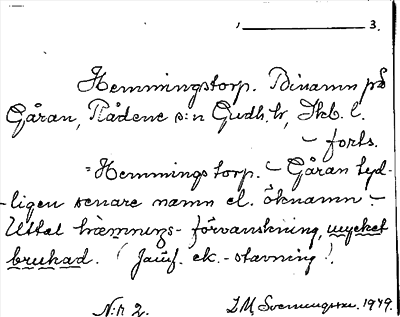 1 3.
Hemmingstorp. Binamn på
Gåran, Rådene s:n Gudh. hr, Skb. l.
– forts.
"Hemmingstorp. – Gåran tyd-
-ligen senare namn el. öknamn –
Uttal hæmuŋs- förvanskning, mycket
brukad. (Jämf. ek.-stavning).
N:r 2. I M Svenungsson. 1949.